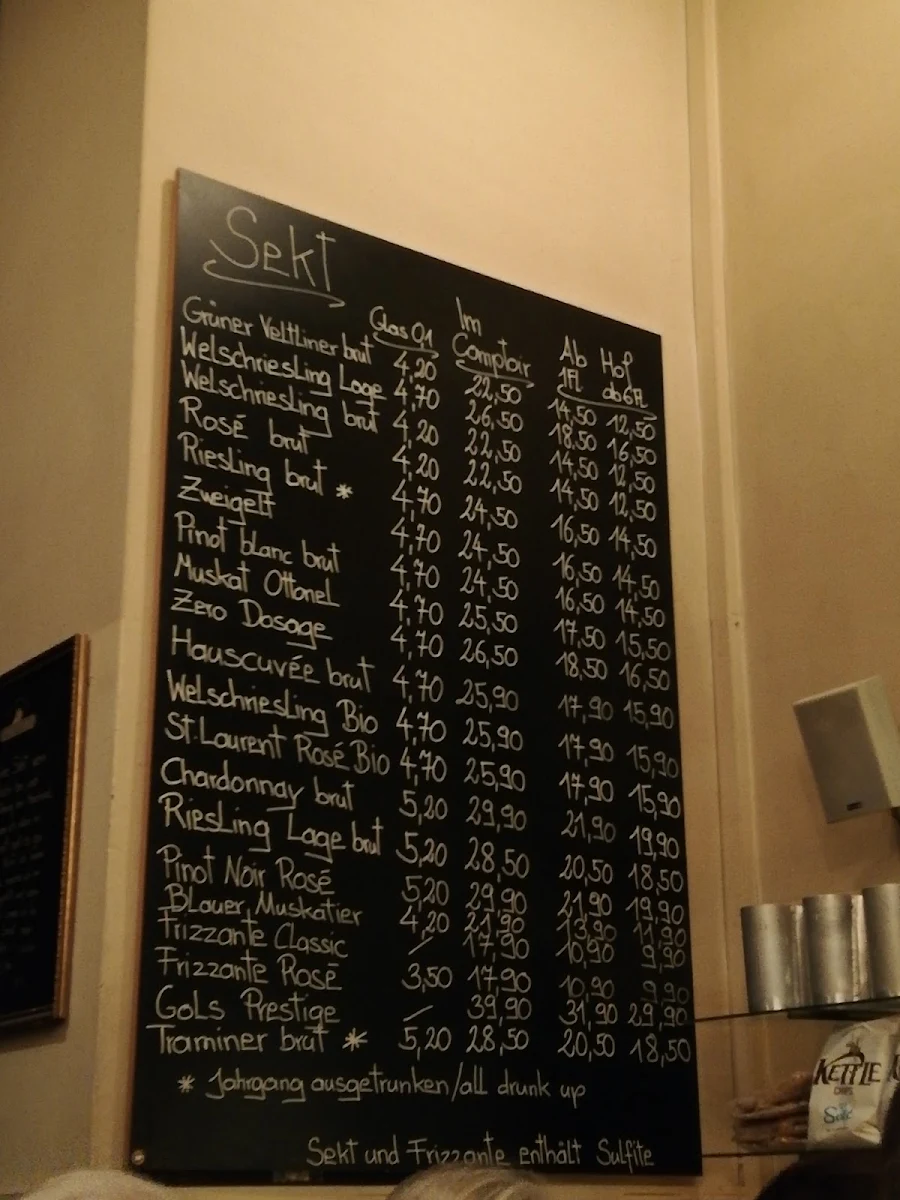 Sekt
Glas 0,1 Im Comptoir Ab Hof
1Fl. ab 6Fl.
Grüner Veltliner brut 4,20 22,50 14,50 12,50
Welschriesling Lage 4,70 26,50 18,50 16,50
Welschriesling brut 4,20 22,50 14,50 12,50
Rosé brut 4,20 22,50 14,50 12,50
Riesling brut * 4,70 24,50 16,50 14,50
Zweigelt 4,70 24,50 16,50 14,50
Pinot blanc brut 4,70 24,50 16,50 14,50
Muskat Ottonel 4,70 25,50 17,50 15,50
Zero Dosage 4,70 26,50 18,50 16,50
Hauscuvée brut 4,70 25,90 17,90 15,90
Welschriesling Bio 4,70 25,90 17,90 15,90
St. Laurent Rosé Bio 4,70 25,90 17,90 15,90
Chardonnay brut 5,20 29,90 21,90 19,90
Riesling Lage brut 5,20 28,50 20,50 18,50
Pinot Noir Rosé 5,20 29,90 21,90 19,90
Blauer Muskatier 4,20 21,90 13,90 11,90
Frizzante Classic / 17,90 10,90 9,90
Frizzante Rosé 3,50 17,90 10,90 9,90
Gols Prestige / 39,90 31,90 29,90
Traminer brut * 5,20 28,50 20,50 18,50
* Jahrgang ausgetrunken/all drunk up
Sekt und Frizzante enthält Sulfite
KETTLE
CHIPS